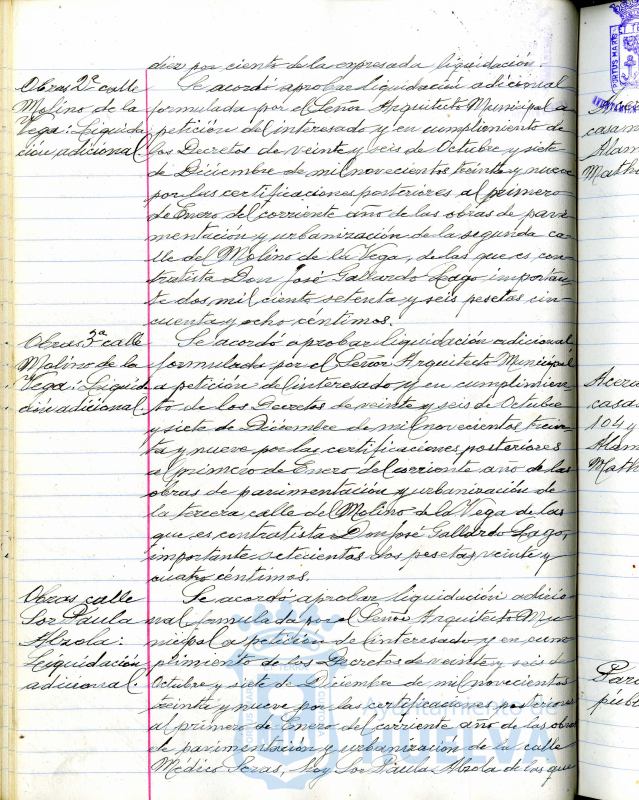 diez por ciento de la expresada liquidación.
Obras 2ª calle
Molino de la
Vega: Liquida
ción adicional
Se acordó aprobar liquidación adicional
formulada por el Señor Arquitecto Municipal a
petición del interesado y en cumplimiento de
los Decretos de veinte y seis de Octubre y siete
de Diciembre de mil novecientos treinta y nueve
por las certificaciones posteriores al primero
de Enero del corriente año de las obras de pavi-
mentación y urbanización de la segunda ca-
lle del Molino de la Vega, de las que es con-
tratista Don José Gallardo Lago, importan-
te dos mil ciento setenta y seis pesetas cin-
cuenta y ocho céntimos.
Obras 3ª calle
Molino de la
Vega: Liquida
ción adicional
Se acordó aprobar liquidación adicional
formulada por el Señor Arquitecto Municipal
a petición del interesado y en cumplimien-
to de los Decretos de veinte y seis de Octubre
y siete de Diciembre de mil novecientos trein-
ta y nueve por las certificaciones posteriores
al primero de Enero del corriente año de las
obras de pavimentación y urbanización de
la tercera calle del Molino de la Vega de las
que es contratista Don José Gallardo Lago,
importante setecientos dos pesetas veinte y
cuatro céntimos.
Obras calle
Sor Paula
Alzola:
Liquidación
adicional.
Se acordó aprobar liquidación adicio-
nal formulada por el Señor Arquitecto Mu-
nicipal a petición del interesado y en cum-
plimiento de los Decretos de veinte y seis de
Octubre y siete de Diciembre de mil novecientos
treinta y nueve por las certificaciones posteriores
al primero de Enero del corriente año de las obras
de pavimentación y urbanización de la calle
Médico Seras, hoy Sor Paula Alzola de las que
Ayuntamiento de
HUELVA
casam
Alam
Math
Acera
casa
104 y
Alam
Math
públ